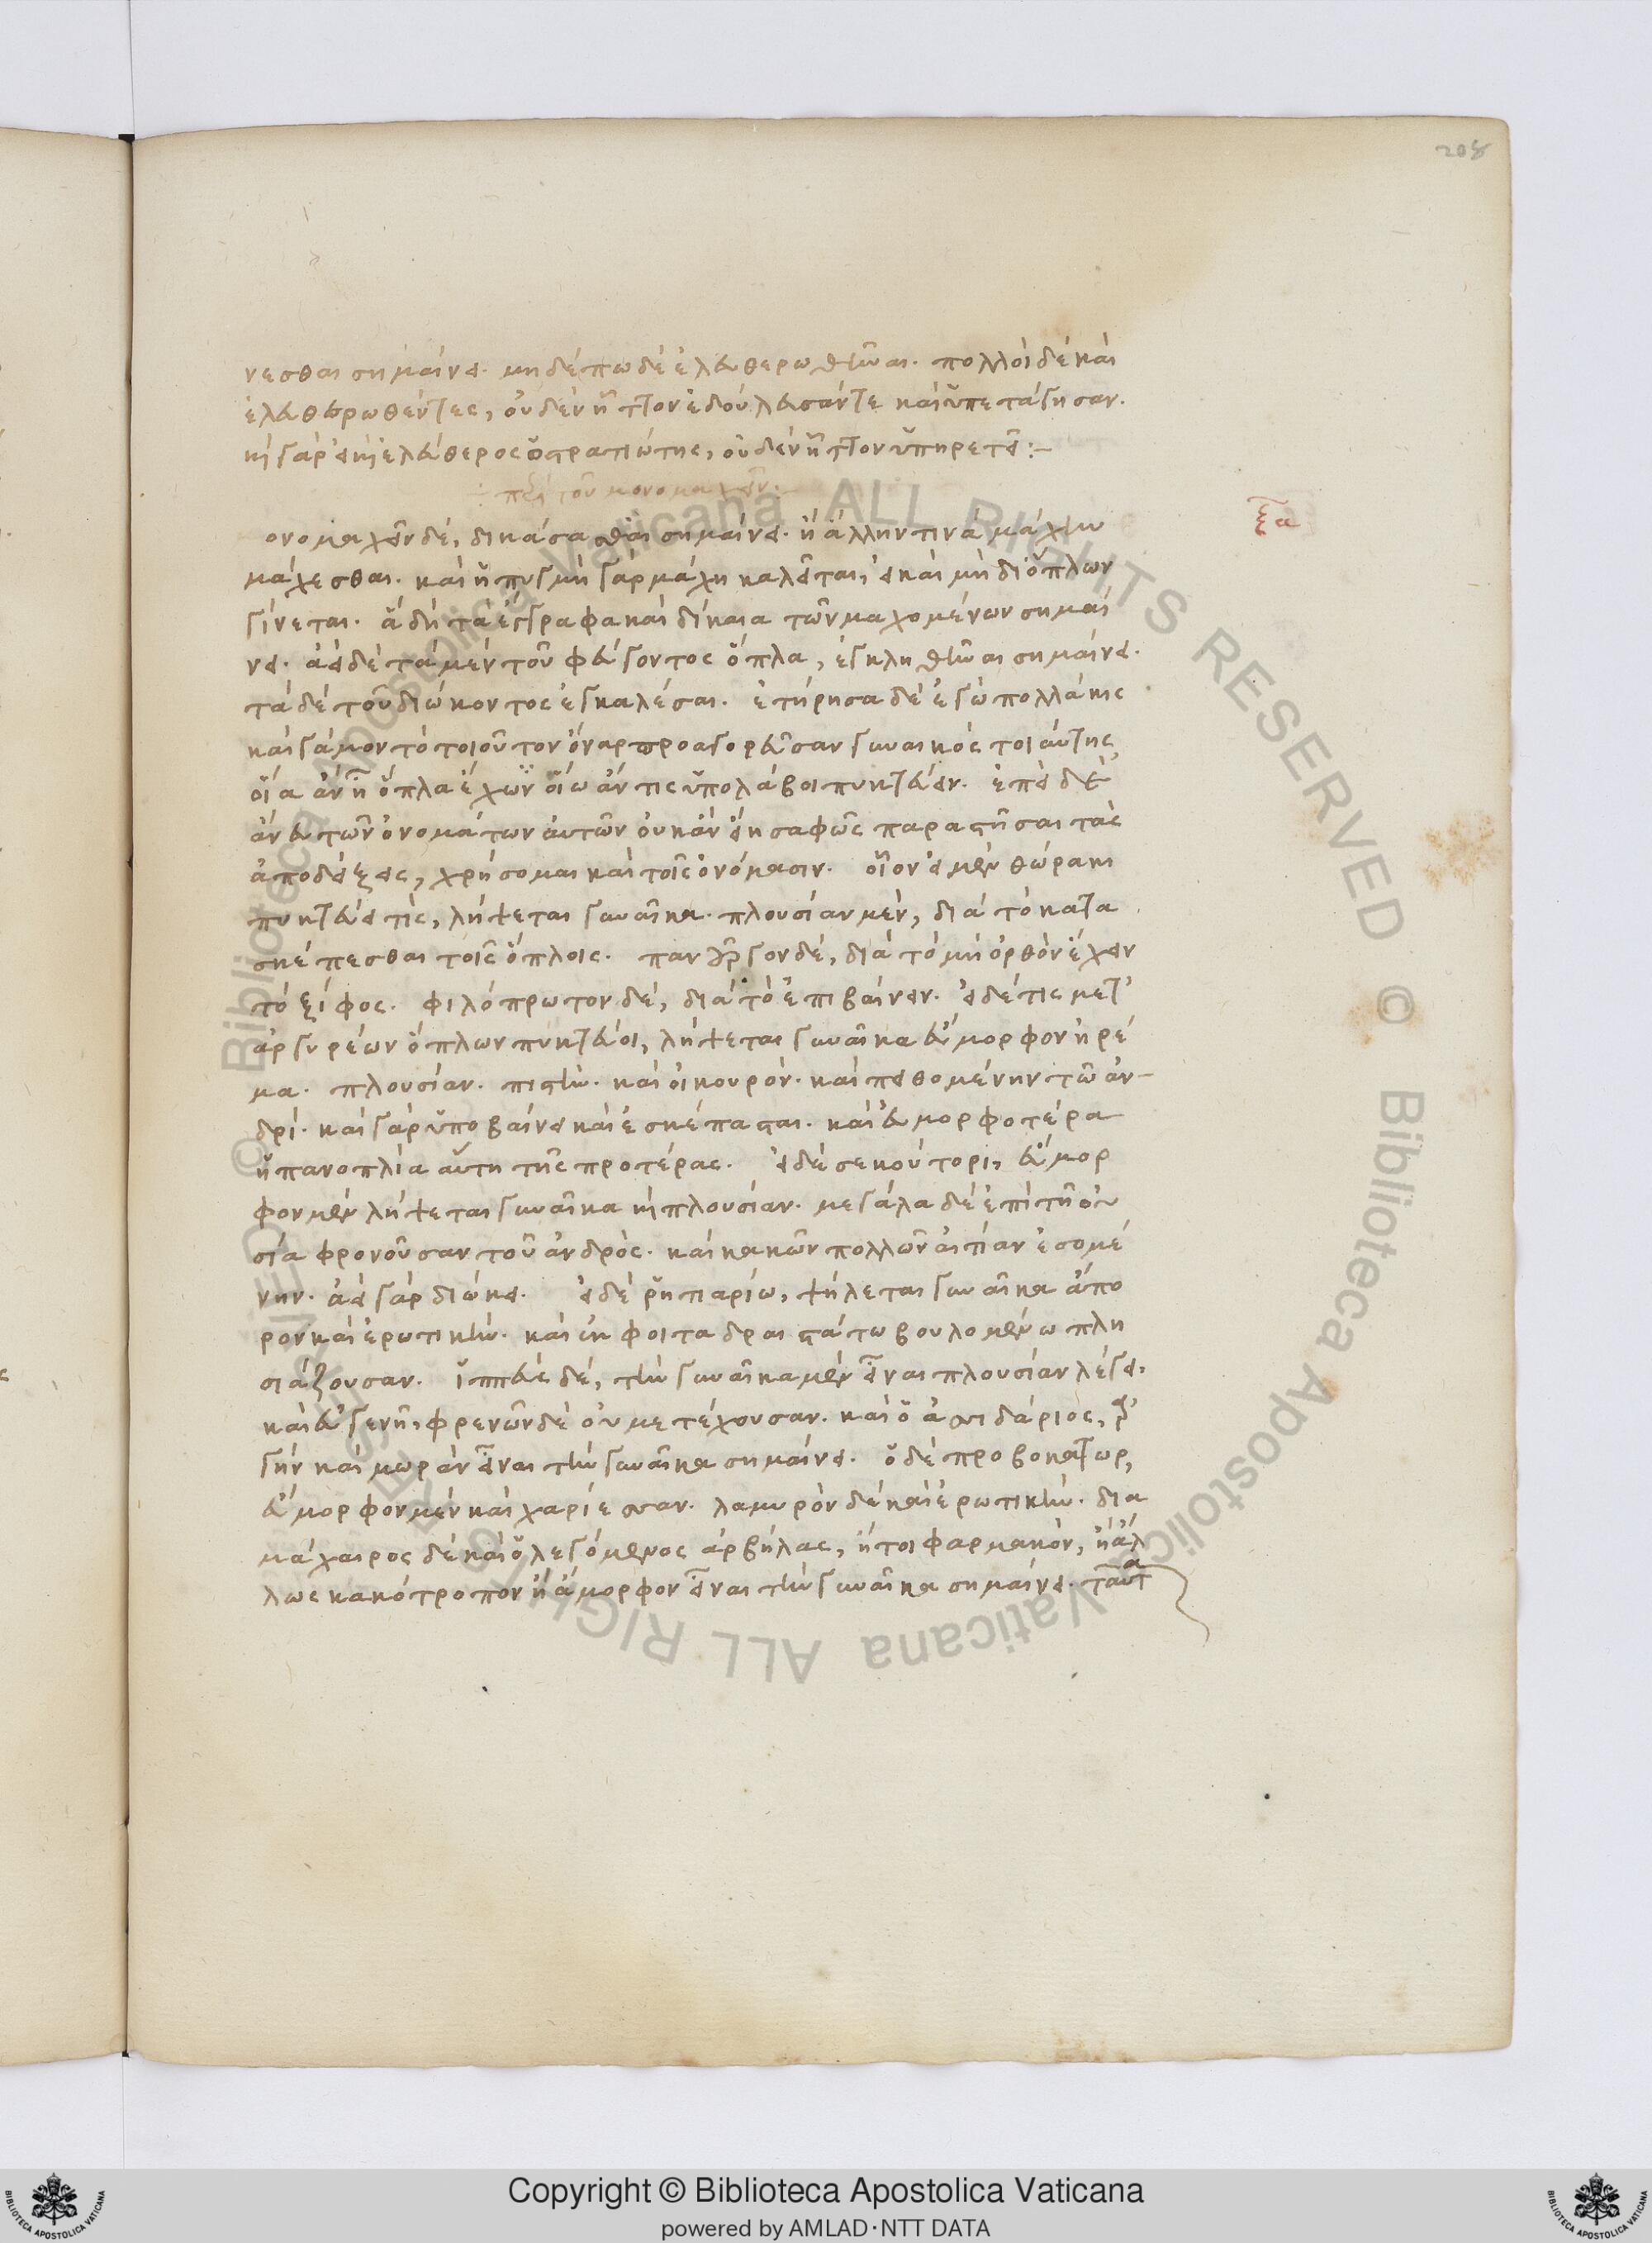 208
νεσθαι σημαίνει. μηδέπω δὲ ἐλευθερωθῆναι. πολλοὶ δὲ καὶ
ἐλευθερωθέντες, οὐδὲν ἧττον ἐδούλευσάν τε καὶ ὑπετάγησαν.
καὶ γὰρ εἰ καὶ ἐλεύθερος ὁ στρατιώτης, οὐδὲν ἧττον ὑπηρετεῖ:–
περὶ τοῦ μονομαχεῖν.
ξα
ονομαχεῖν δὲ, δικάσασθαι σημαίνει. ἢ ἄλλην τινὰ μάχην
μάχεσθαι. καὶ ἡ πυγμὴ γὰρ μάχη καλεῖται, εἰ καὶ μὴ δι' ὅπλων
γίνεται. ἃ δὴ τὰ ἔγγραφα καὶ δίκαια τῶν μαχομένων σημαί
νει. ἀεὶ δὲ τὰ μὲν τοῦ φεύγοντος ὅπλα, ἐγκληθῆναι σημαίνει.
τὰ δὲ τοῦ διώκοντος ἐγκαλέσαι. ἐτήρησα δὲ ἐγὼ πολλάκις
καὶ γάμον τὸ τοιοῦτον ὄναρ προαγορεῦσαν γυναικὸς τοιαύτης
οἷα ἂν ᾖ ὅπλα ἔχων οἵω ἄν τις ὑπολάβοι πυκτεύειν. ἐπεὶ δὲ
ἄνευ τῶν ὀνομάτων αὐτῶν οὐκ ἂν εἴη σαφῶς παραστῆσαι τὰς
ἀποδείξεις, χρήσομαι καὶ τοῖς ὀνόμασιν. οἷον εἰ μὲν θώρακι
πυκτεύει τὶς, λήψεται γυναῖκα. πλουσίαν μὲν, διὰ τὸ κατα
σκέπεσθαι τοῖς ὅπλοις. πανοῦργον δὲ, διὰ τὸ μὴ ὀρθὸν ἔχειν
τὸ ξίφος. φιλόπρωτον δὲ, διὰ τὸ ἐπιβαίνειν. εἰ δέ τις μετ'
ἀργυρέων ὅπλων πυκτεύοι, λήψεται γυναῖκα εὔμορφον ἠρέ
μα. πλουσίαν. πιστὴν. καὶ οἰκουρὸν. καὶ πειθομένην τῶ ἀν–
δρί. καὶ γὰρ ὑποβαίνει καὶ ἐσκέπασται. καὶ εὐμορφοτέρα
ἡ πανοπλία αὕτη τῆς προτέρας. εἰ δὲ σεκούτορι, εὔμορ
φον μὲν λήψεται γυναῖκα καὶ πλουσίαν. μεγάλα δὲ ἐπὶ τῆ οὐ
σία φρονοῦσαν τοῦ ἀνδρὸς. καὶ κακῶν πολλῶν αἰτίαν ἐσομέ
νην. ἀεὶ γὰρ διώκει. εἰ δὲ ῥητιαρίω, ψήλεται γυναῖκα ἄπο
ρον καὶ ἐρωτικὴν. καὶ ἐκφοιτα δραιστάτω βουλομένω πλη
σιάζουσαν. ἱππεὺς δὲ, τὴν γυναῖκα μὲν εἶναι πλουσίαν λέγει.
καὶ εὐγενῆ, φρενῶν δὲ οὐ μετέχουσαν. καὶ ὁ ἀσσιδάριος, ἀρ
γὴν καὶ μωρὰν εἶναι τὴν γυναῖκα σημαίνει. ὁ δὲ προβοκάτωρ,
εὔμορφον μὲν καὶ χαρίεσσαν. λαμυρὸν δὲ καὶ ἐρωτικὴν. δια
μάχαιρος δὲ καὶ ὁ λεγόμενος ἀρβήλας, ἤτοι φαρμακὸν, ἢ ἄλ
λως κακότροπον ἢ ἄμορφον εἶναι τὴν γυναῖκα σημαίνει. ταῦτα
Copyright © Biblioteca Apostolica Vaticana
powered by AMLAD·NTT DATA
© Biblioteca Apostolica Vaticana ALL RIGHTS RESERVED
© Biblioteca Apostolica Vaticana ALL RIGHTS RESERVED